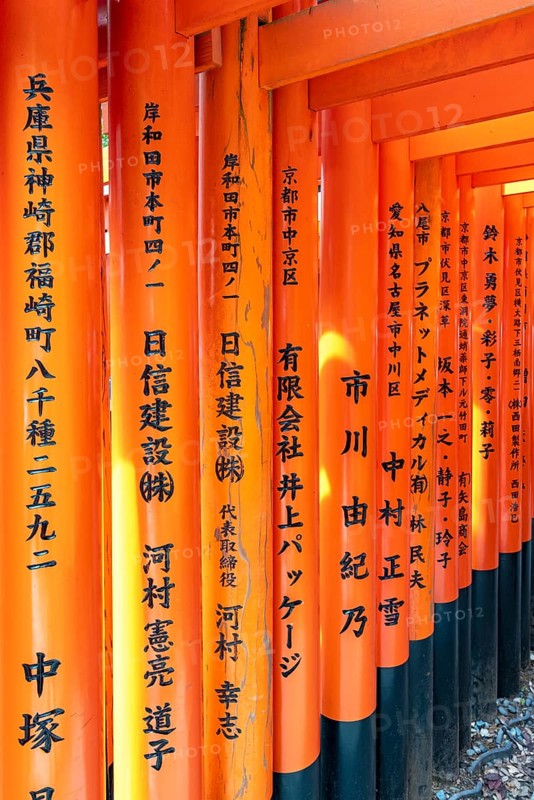 兵庫県神崎郡福崎町八千種二五九二 中塚
岸和田市本町四ノ一 日信建設㈱ 河村憲亮 道子
岸和田市本町四ノ一 日信建設㈱ 代表取締役 河村幸志
京都市中京区 有限会社 井上パッケージ
市川由紀乃
愛知県名古屋市中川区 中村正雪
八尾市 プラネットメディカル㈲ 林民夫
京都市伏見区深草 坂本一之・静子・玲子
京都市中京区東洞院通蛸薬師下ル元竹田町 ㈲矢島商会
鈴木勇夢 彩子・零 莉子
京都市伏見区横大路下三栖南郷二一 ㈱西田製作所 西田浩巳
PHOTO12